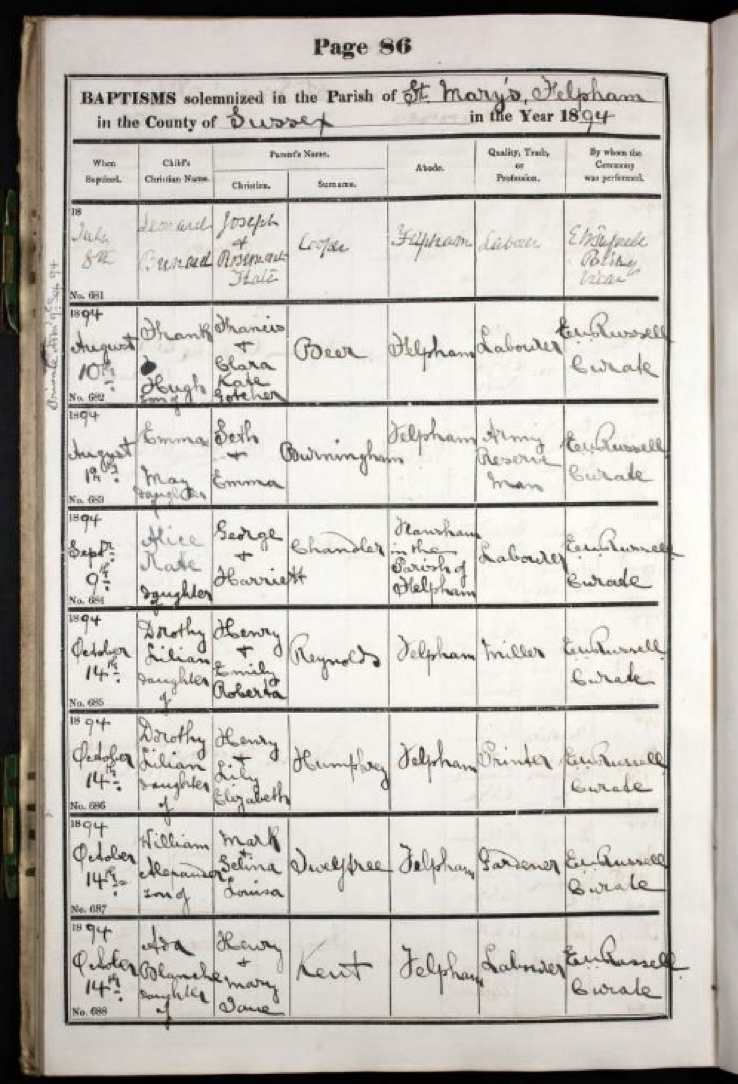 Page 86
BAPTISMS solemnized in the Parish of St. Mary's, Felpham
in the County of Sussex in the Year 1894
When Baptized. Child's Christian Name. Parent's Name. Christian. Surname. Abode. Quality, Trade, or Profession. By whom the Ceremony was performed.
18
July 8th
Leonard
Joseph
&
Rosemont
Cooper
Felpham
Labourer
Vicar
No. 681
1894
August
10th
Frank
Hugh
son of
Francis
+
Clara
Kate
Gotcher
Beer
Felpham
Labourer
E.W. Russell
Curate
No. 682
1894
August
Emma
May
daughter
Seth
+
Emma
Burningham
Felpham
Army
Reserve
man
E.W. Russell
Curate
No. 683
1894
Septr.
9th
Alice
Kate
daughter
George
+
Harriett
Chandler
in the
Parish of
Felpham
Labourer
E.W. Russell
Curate
No. 684
1894
October
14th
Dorothy
Lilian
daughter
of
Henry
+
Emily
Roberta
Reynolds
Felpham
Miller
E.W. Russell
Curate
No. 685
1894
October
14th
Dorothy
Lilian
daughter
of
Henry
+
Lily
Elizabeth
Humphrey
Felpham
Printer
E.W. Russell
Curate
No. 686
1894
October
14th
William
Alexander
son of
Mark
+
Selina
Louisa
Twelftree
Felpham
Gardener
E.W. Russell
Curate
No. 687
1894
October
14th
Ada
Blanche
daughter
of
Henry
+
Mary
Jane
Kent
Felpham
Labourer
E.W. Russell
Curate
No. 688